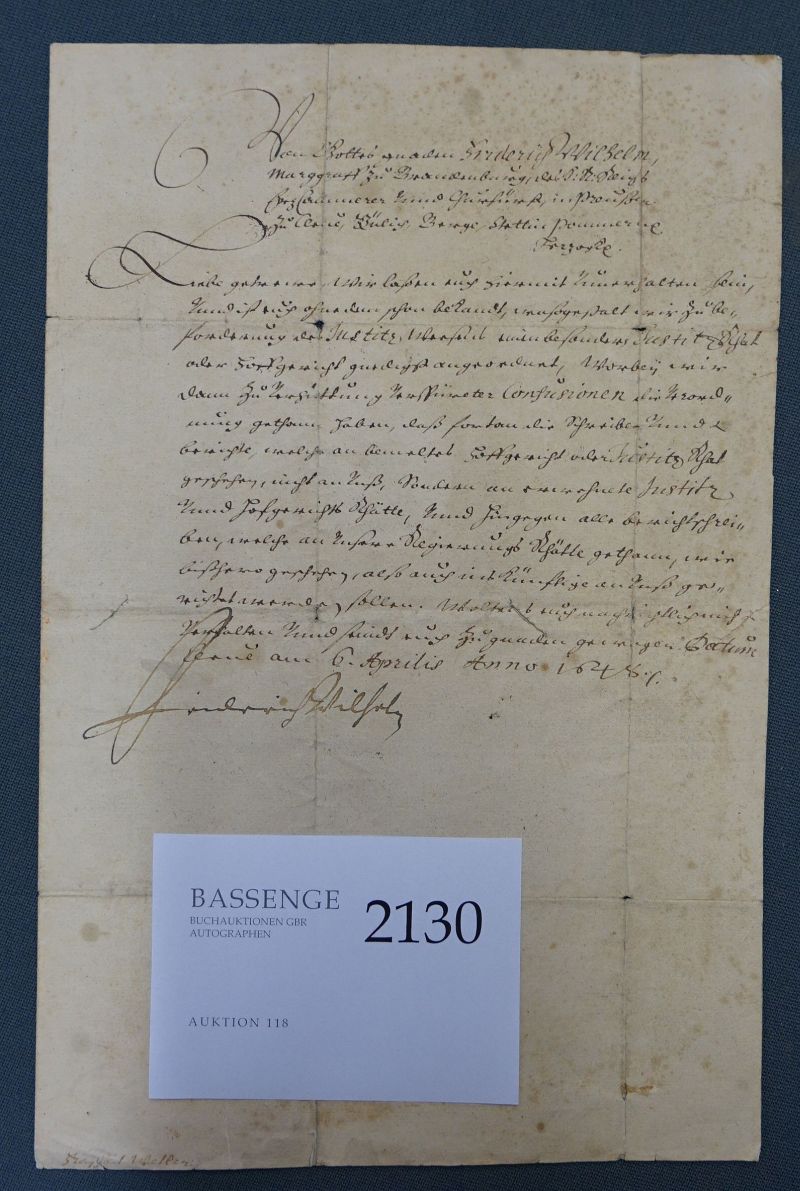 Von Gottes gnaden Friderich Wilhelm,
Marggraff zu Brandenburg, des
Ertz Cammerer unnd Churfürst, in Preußen
zu Cleve, Gülich, Berge, Stettin Pommern
Hertzogk.
Liebe getrewe, Wir laßen euch hiermit unverhalten sein,
Unnd ist euch ohne dem schon bekandt, waßgestalt wir zu be-
forderung des Justitz Wesens einen besondern Justitz Rhat
oder Hoffgericht gnedigst angeordnet, Worbey wir
dann zu verhüttung Confusionen die verord-
nung gethann haben, daß fortan die Schreiben unnd
berichte, welche an bemeltes Hoffgericht oder Justitz Rhat
geschehen, nicht an Unß, Sondern an erwehnte Justitz
unnd Hofgerichts Rhätte, unnd hingegen alle berichtschrei-
ben, welche an Unsere Regierungs Rhätte gethann, wie
bißhero geschehen, also auch ins Künftige an Unß ge-
richtet werden sollen. Wolten euch nach
verhalten unnd seindt euch zu gnaden gewogen. Datum
Cleve am 6. Aprilis Anno 1648.
Friderich Wilhelm
BASSENGE
BUCHAUKTIONEN GBR
AUTOGRAPHEN
2130
AUKTION 118